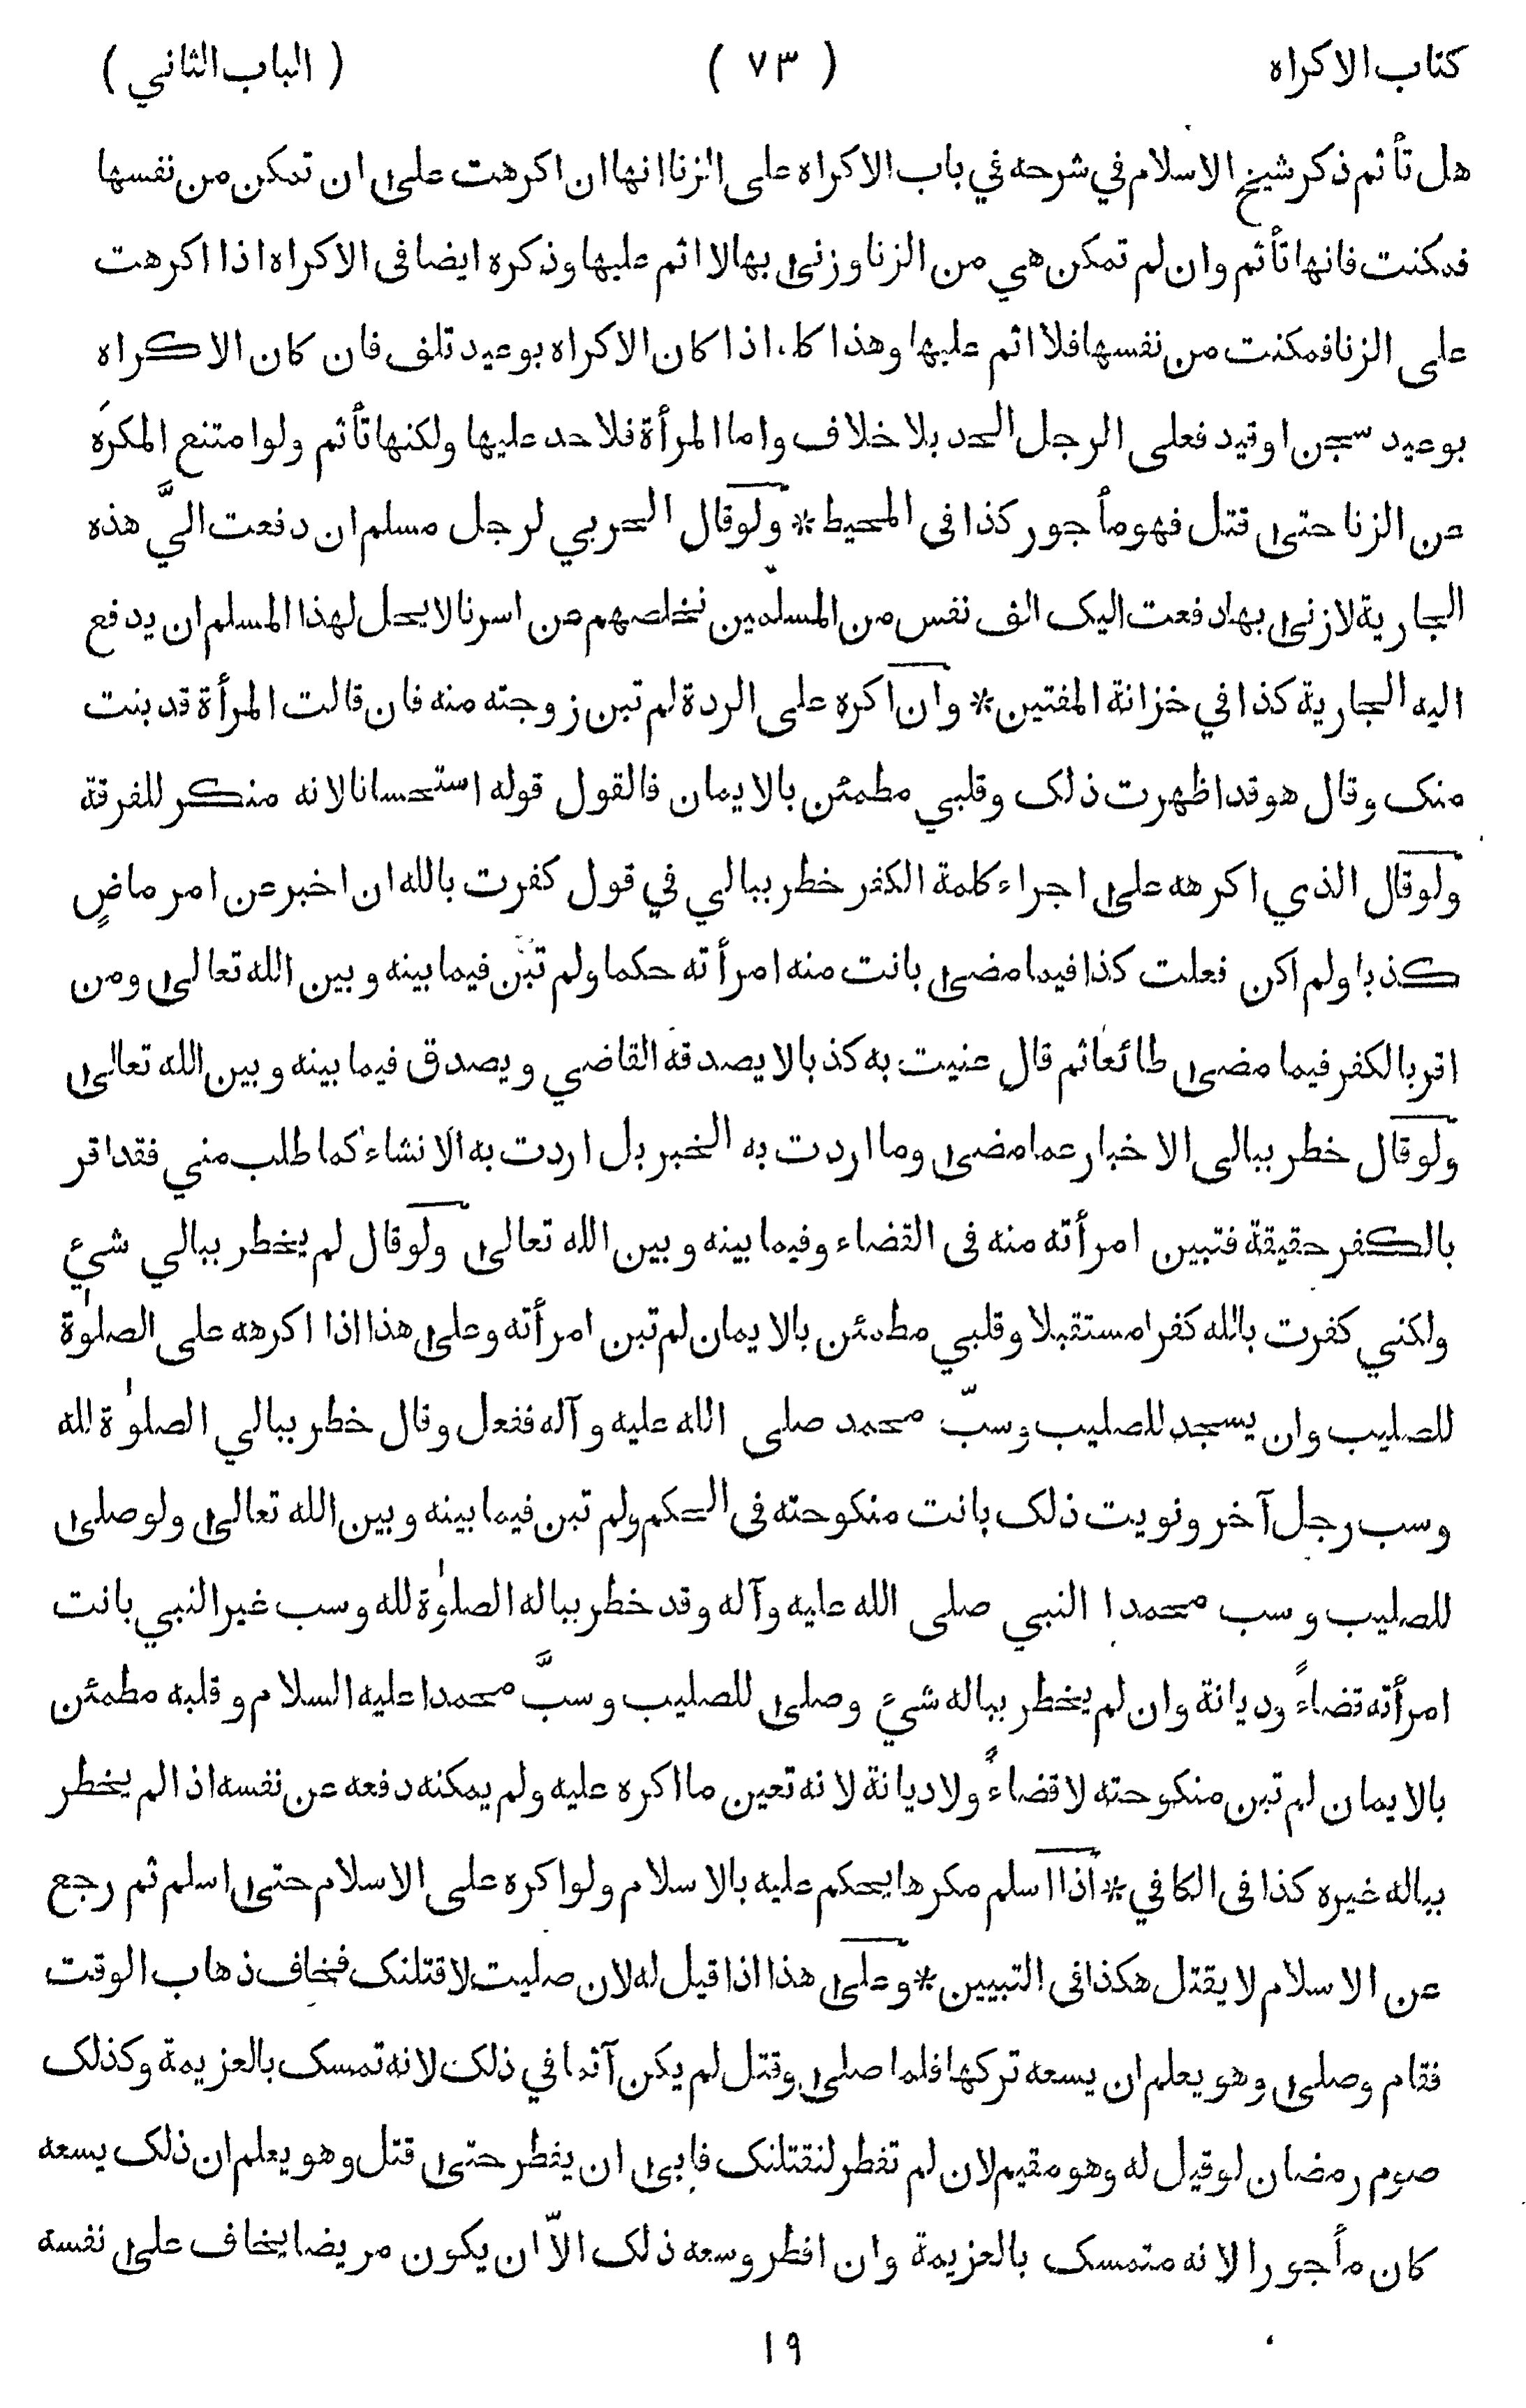 كتاب الاكراه ( ٧٣ ) ( الباب الثاني )
هل تأثم ذكر شيخ الاسلام في شرحه في باب الاكراه على الزنا انها ان اكرهت على ان تمكن من نفسها
فمكنت فانها تأثم وان لم تمكن هي من الزنا وزنى بها لا اثم عليها وذكره ايضا فى الاكراه اذا اكرهت
على الزنا فمكنت من نفسها فلا اثم عليها وهذا كله اذا كان الاكراه بوعيد تلف فان كان الاكراه
بوعيد سجن او قيد فعلى الرجل الحد بلا خلاف واما المرأة فلا حد عليها ولكنها تأثم ولو امتنع المكرَه
عن الزنا حتى قتل فهو مأجور كذا فى المحيط * ولو قال الحربي لرجل مسلم ان دفعت اليَّ هذه
الجارية لازنى بها دفعت اليك الف نفس من المسلمين نخلصهم من اسرنا لا يحل لهذا المسلم ان يدفع
اليه الجارية كذا في خزانة المفتين * وان اكره على الردة لم تبن زوجته منه فان قالت المرأة قد بنت
منك وقال هو قد اظهرت ذلك وقلبي مطمئن بالايمان فالقول قوله استحسانا لانه منكر للفرقة
ولو قال الذي اكرهه على اجراء كلمة الكفر خطر ببالي في قول كفرت بالله ان اخبر عن امر ماضٍ
كذبا ولم اكن فعلت كذا فيما مضى بانت منه امرأته حكما ولم تبن فيما بينه وبين الله تعالى ومن
اقر بالكفر فيما مضى طائعا ثم قال عنيت به كذبا لا يصدقه القاضي ويصدق فيما بينه وبين الله تعالى
ولو قال خطر ببالى الاخبار عما مضى وما اردت به الخبر بل اردت به الانشاء كما طلب مني فقد اقر
بالكفر حقيقة فتبين امرأته منه فى القضاء وفيما بينه وبين الله تعالى ولو قال لم يخطر ببالي شيء
ولكني كفرت بالله كفرا مستقبلا وقلبي مطمئن بالايمان لم تبن امرأته وعلى هذا اذا اكرهه على الصلوٰة
للصليب وان يسجد للصليب وسبّ محمد صلى الله عليه وآله ففعل وقال خطر ببالي الصلوٰة لله
وسب رجل آخر ونويت ذلك بانت منكوحته فى الحكم ولم تبن فيما بينه وبين الله تعالى ولو صلى
للصليب وسب محمدا النبي صلى الله عليه وآله وقد خطر بباله الصلوٰة لله وسب غير النبي بانت
امرأته قضاءً وديانة وان لم يخطر بباله شيء وصلى للصليب وسبَّ محمدا عليه السلام وقلبه مطمئن
بالايمان لم تبن منكوحته لا قضاءً ولا ديانة لانه تعين ما اكره عليه ولم يمكنه دفعه عن نفسه اذا لم يخطر
بباله غيره كذا فى الكافي * اذا اسلم مكرها يحكم عليه بالاسلام ولو اكره على الاسلام حتى اسلم ثم رجع
عن الاسلام لا يقتل هكذا فى التبيين * وعلى هذا اذا قيل له لان صليت لاقتلنك فخاف ذهاب الوقت
فقام وصلى وهو يعلم ان يسعه تركها فلما صلى وقتل لم يكن آثما في ذلك لانه تمسك بالعزيمة وكذلك
صوم رمضان لو قيل له وهو مقيم لان لم تفطر لنقتلنك فابى ان يفطر حتى قتل وهو يعلم ان ذلك يسعه
كان مأجورا لانه متمسك بالعزيمة وان افطر وسعه ذلك الاّ ان يكون مريضا يخاف على نفسه
١٩